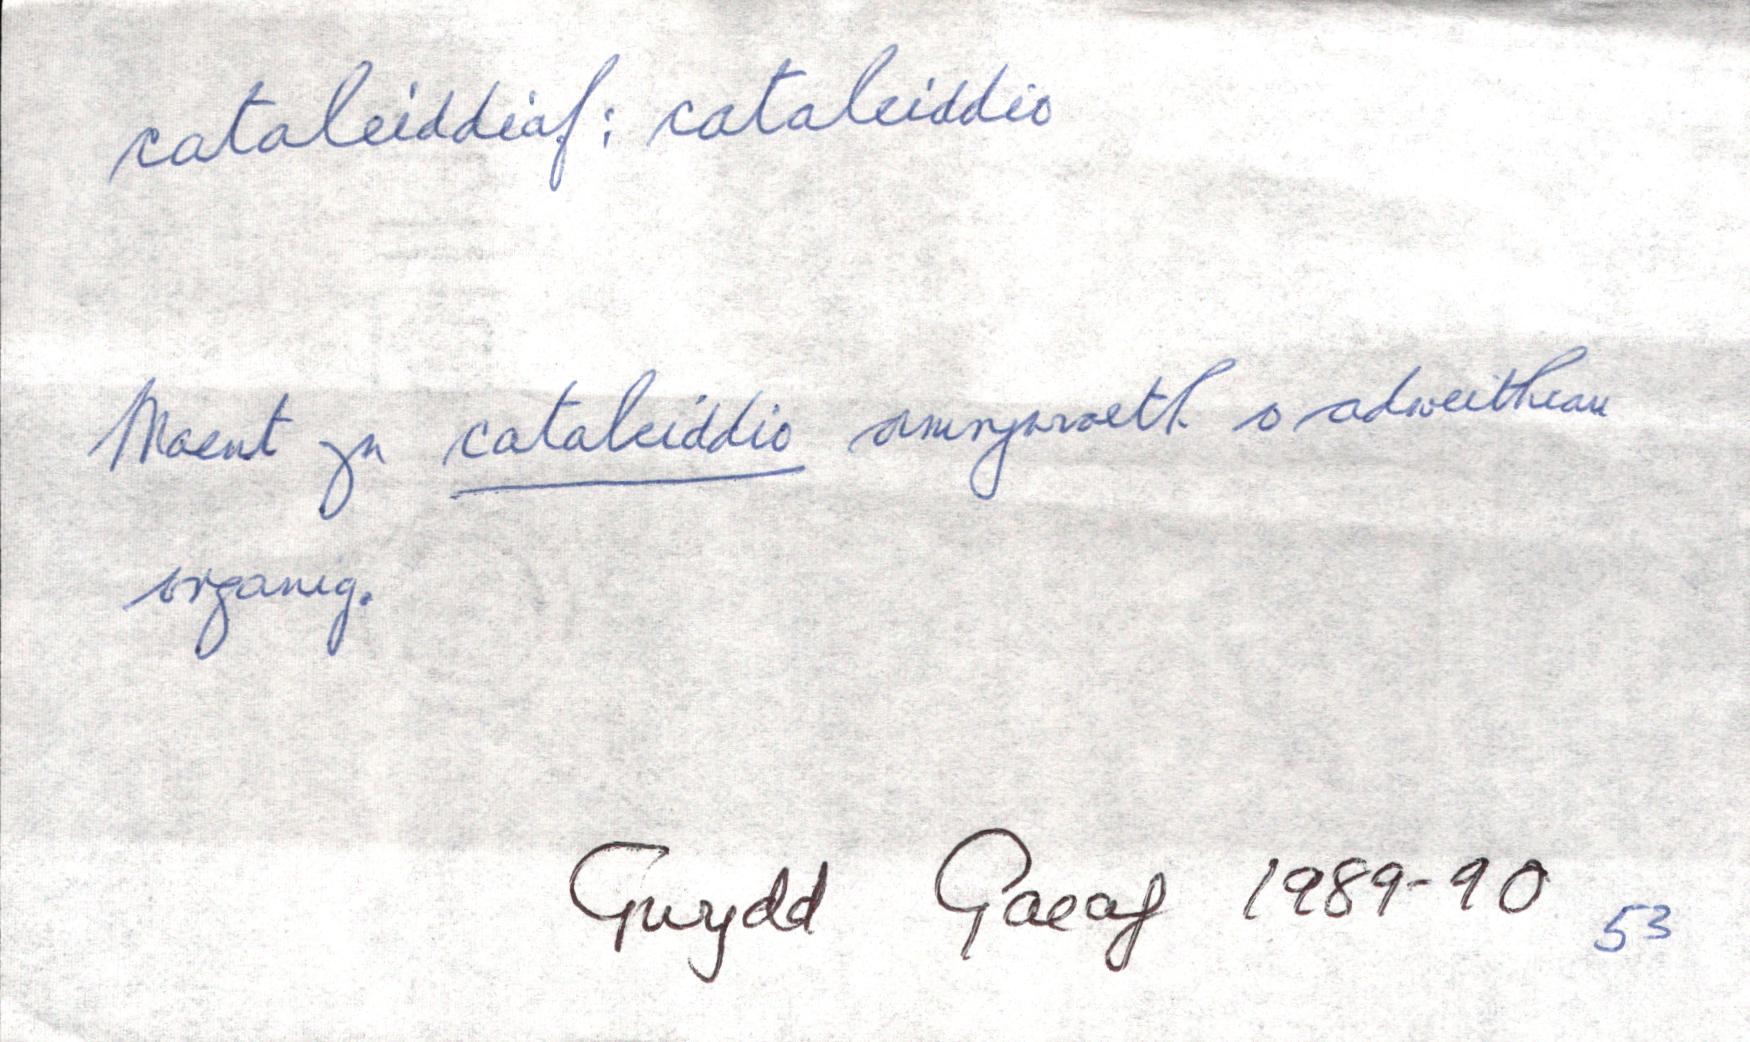 cataleiddiaf: cataleiddio
Maent yn cataleiddio amrywiaeth o adweitheau
organig.
Gwydd Gaeaf 1989-90 53